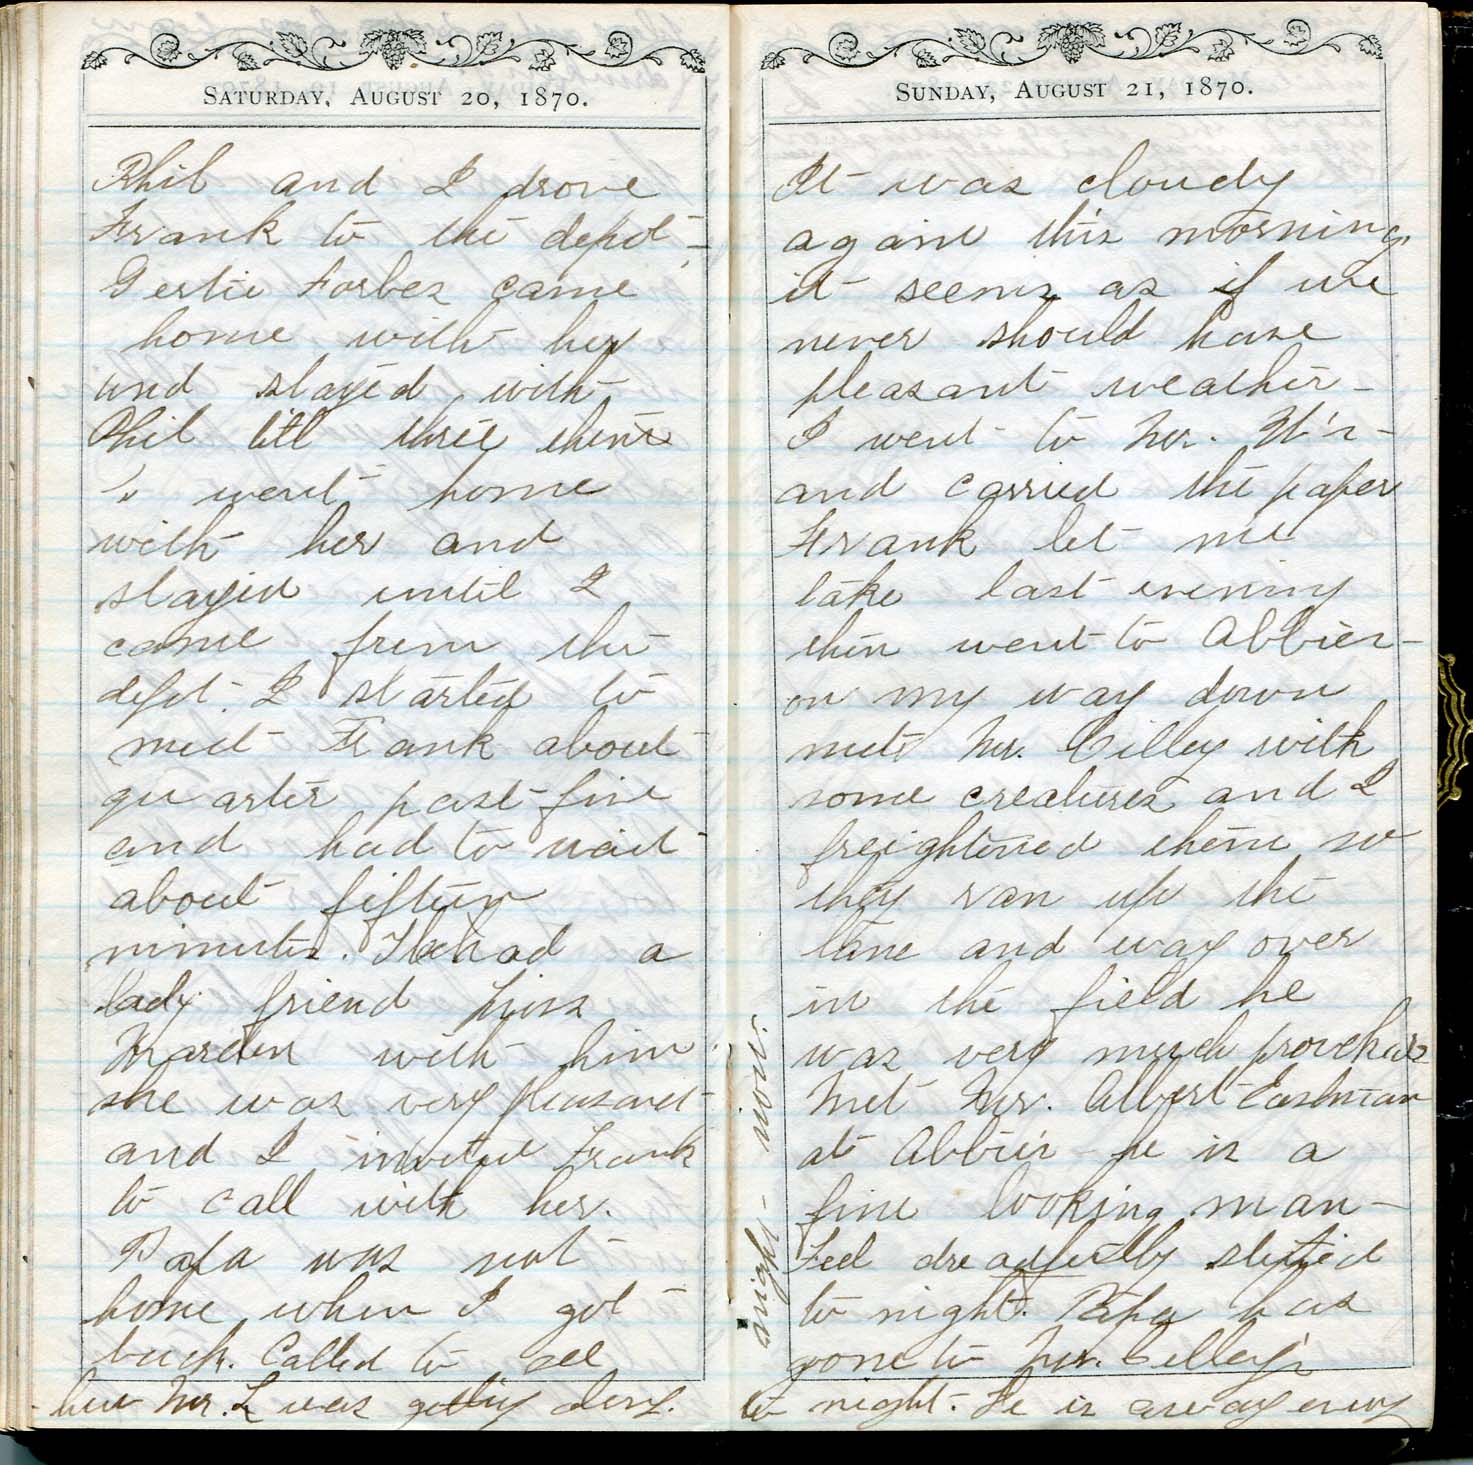 SATURDAY, AUGUST 20, 1870.
Phil and I drove
Frank to the depot-
Gertie Forbes came
home with her
and stayed with
Phil till three then
I went home
with her and
stayed until I
came from the
depot. I started to
meet Frank about
quarter past five
and had to wait
about fifteen
minutes. He had a
lady friend Miss
Marden with him
she was very pleasant
and I invited Frank
to call with her.
Papa was not
home when I got
back. Called to see
how Mr. L was getting along.
SUNDAY, AUGUST 21, 1870.
It was cloudy
again this morning
it seems as if we
never should have
pleasant weather-
I went to Mr.
and carried the paper
Frank let me
take last evening
then went to Abbies-
on my way down
met Mr. Cilley with
some creatures and I
freightened them so
they ran up the
lane and way over
in the field he
was very much
Met Mr. Albert Eastman
at Abbie's he is a
fine looking man-
Feel dreadfully
to night. Papa has
gone to Mr. Cilley's
to night. He is away every
night- now.